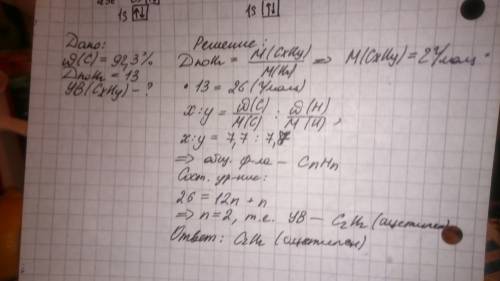 1s ↑↓ 1s ↑↓
Дано:
ω(C) = 92,3%
D по H₂ = 13
УВ (CxHy) - ?
Решение:
D по H₂ = M(CxHy) / M(H₂) => M(CxHy) = 2 г/моль ·
· 13 = 26 (г/моль)
x : y = ω(C) / M(C) : ω(H) / M(H) ,
x : y = 7,7 : 7,7
=> общ. ф-ла - CnHn
Сост. ур-ние:
26 = 12n + n
=> n = 2, т.е. УВ - C₂H₂ (ацетилен)
Ответ: C₂H₂ (ацетилен)